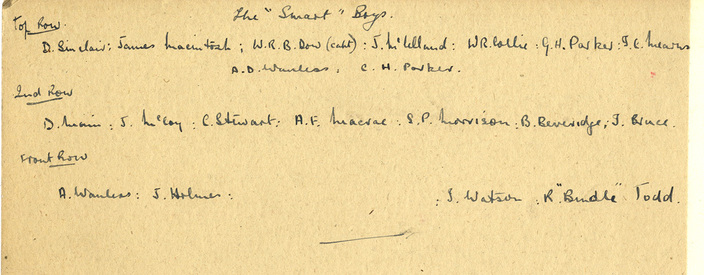 The "Smart" Boys.
Top Row.
D. Sinclair; James Macintosh; W.R.B. Dow (capt): J. McLelland: W.R. Collie: G.H. Parker: J.C. Mearns
A.D. Wanless, C.H. Parker.
2nd Row
D. Main: J. McCoy: C. Stewart: A.F. Macrae: S.P. Morrison: B. Beveridge; J. Bruce.
Front Row
A. Wanless: J. Holmes: : J. Watson: R "Bindle" Todd.